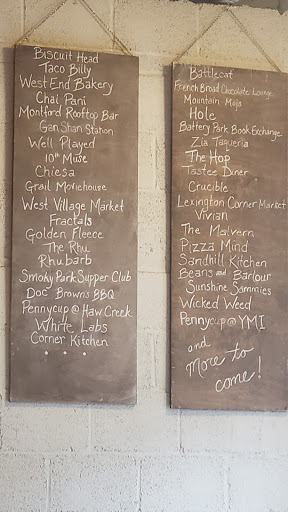 Biscuit Head
Taco Billy
West End Bakery
Chai Pani
Montford Rooftop Bar
Gan Shan Station
Well Played
10th Muse
Chiesa
Grail Moviehouse
West Village Market
Fractals
Golden Fleece
The Rhu
Rhubarb
Smoky Park Supper Club
Doc Browns BBQ
Pennycup @ Haw Creek
White Labs
Corner Kitchen
• • •
Battlecat
French Broad Chocolate Lounge
Mountain Mojo
Hole
Battery Park Book Exchange
Zia Taqueria
The Hop
Tastee Diner
Crucible
Lexington Corner Market
Vivian
The Malvern
Pizza Mind
Sandhill Kitchen
Beans and Barlour
Sunshine Sammies
Wicked Weed
Pennycup @ YMI
and
More to
come!